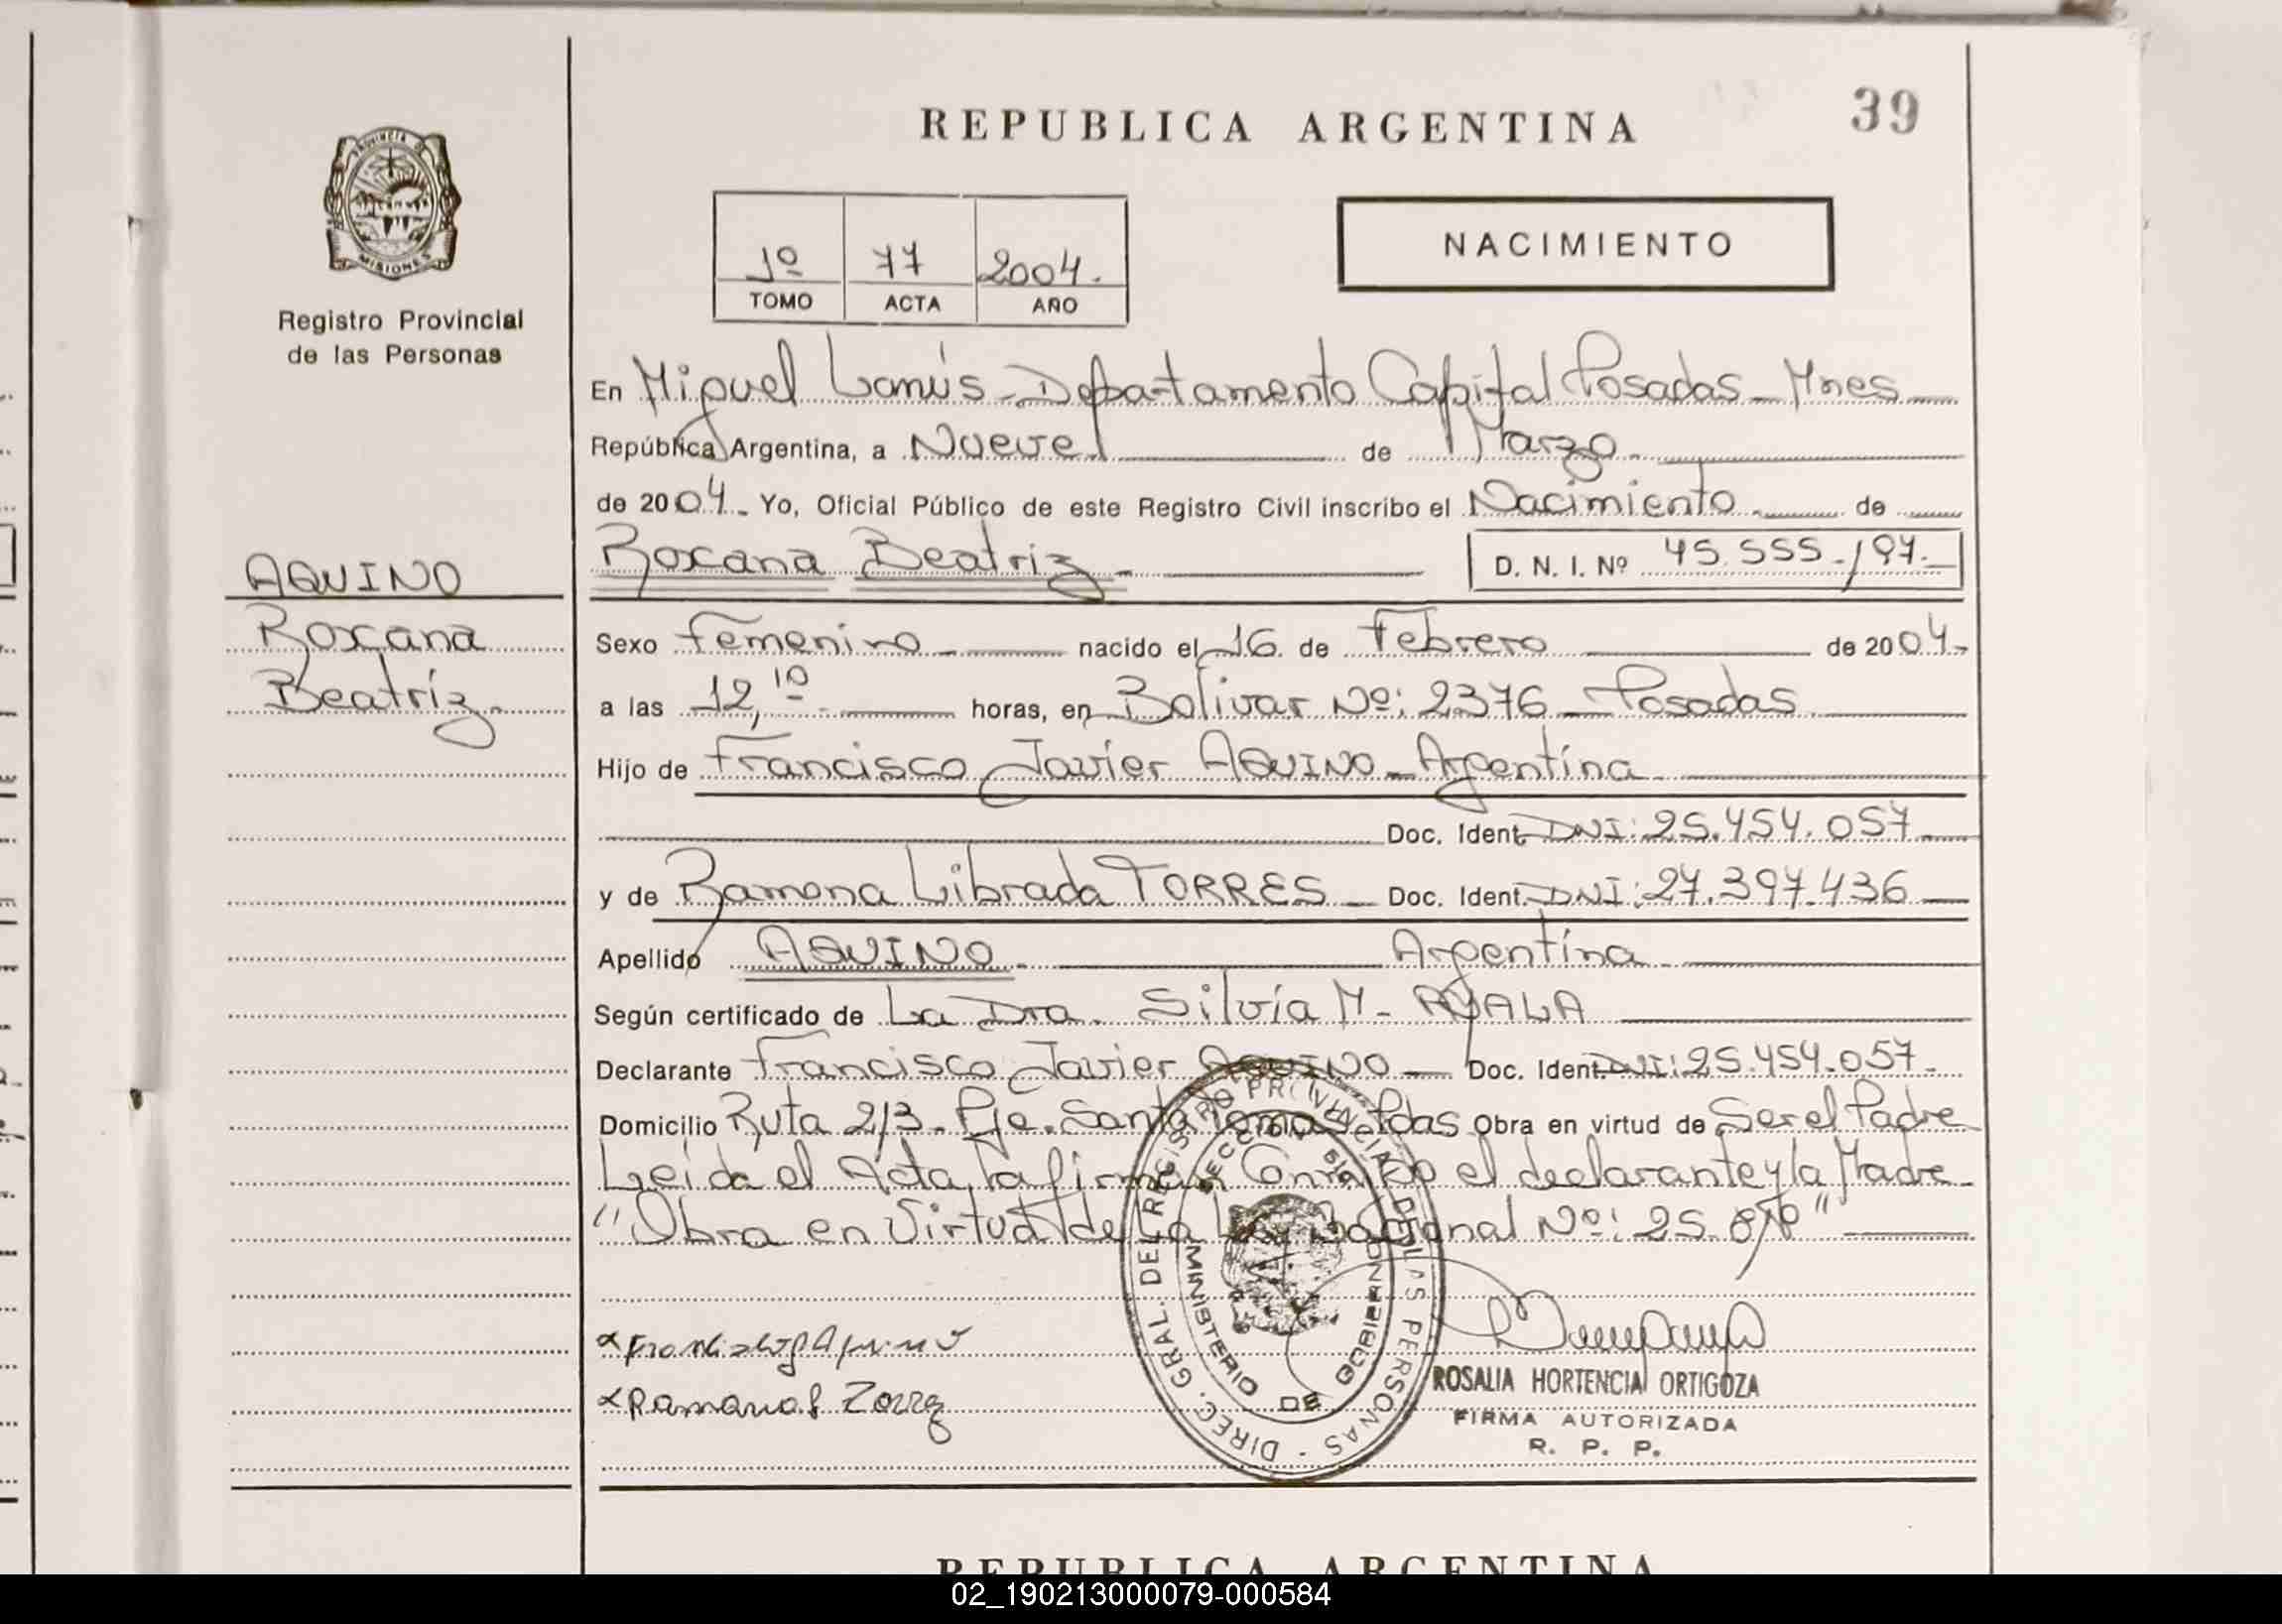 REPUBLICA ARGENTINA
39
PROVINCIA DE
MISIONES
Registro Provincial
de las Personas
1º 77 2004.
TOMO ACTA AÑO
NACIMIENTO
En Miguel Lanús - Departamento Capital Posadas - Mnes
República Argentina, a Nueve de Marzo
de 2004. Yo, Oficial Público de este Registro Civil inscribo el Nacimiento de
Roxana Beatriz D. N. I. Nº 45.555.197.
AQUINO
Roxana
Beatríz.
Sexo femenino nacido el 16 de Febrero de 2004.
a las 12,10 horas, en Bolivar Nº: 2376 - Posadas
Hijo de Francisco Javier AQUINO - Argentina
Doc. Ident. DNI: 25.454.057
y de Ramona Librada TORRES Doc. Ident. DNI: 27.397.436
Apellido AQUINO Argentina
Según certificado de La Dra. Silvía M. AYALA
Declarante Francisco Javier AQUINO Doc. Ident. DNI: 25.454.057.
Domicilio Ruta 213. Pje. Santa Pdas Obra en virtud de Ser el Padre
Leida el Acta la firman Conmigo el declarante y la Madre
"Obra en Virtud de La Ley Nacional Nº: 25.
DIREC. GRAL. DEL REGISTRO PROVINCIAL DE LAS PERSONAS
MINISTERIO DE GOBIERNO
ROSALIA HORTENCIA ORTIGOZA
FIRMA AUTORIZADA
R. P. P.
REPUBLICA ARGENTINA
02_190213000079-000584